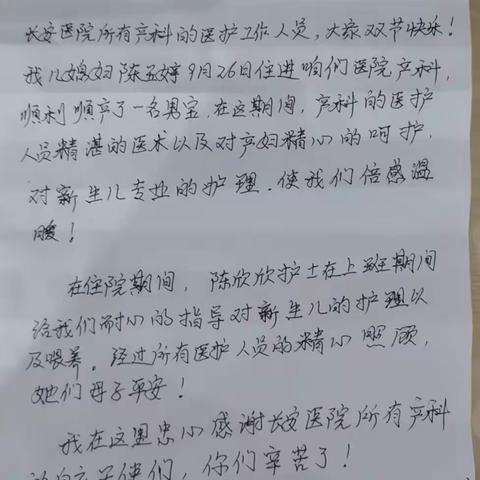 长安医院所有产科的医护工作人员,大家双节快乐!
我儿媳妇陈孟婷9月26日住进咱们医院产科,
顺利顺产了一名男宝,在这期间,产科的医护
人员精湛的医术以及对产妇精心的呵护,
对新生儿专业的护理,使我们倍感温
暖!
在住院期间,陈欣欣护士在上班期间
给我们耐心的指导对新生儿的护理以
及喂养。经过所有医护人员的精心照顾,
她们母子平安!
我在这里忠心感谢长安医院所有产科
的白衣天使们,你们辛苦了!